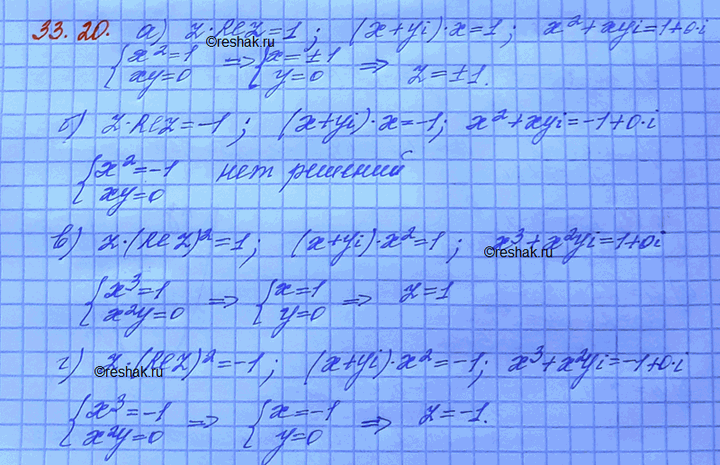 33.20. а) z·Rez=1 ; (x+yi)·x=1 ; x²+xyi=1+0·i
©reshak.ru
{x²=1 xy=0 => {x=±1 y=0 => z=±1.
б) z·Rez=-1 ; (x+yi)·x=-1; x²+xyi=-1+0·i
{x²=-1 xy=0 нет решений
в) z·(Rez)²=1 ; (x+yi)·x²=1 ; x³+x²yi=1+0i
©reshak.ru
{x³=1 x²y=0 => {x=1 y=0 => z=1
г) z·(Rez)²=-1 ; (x+yi)·x²=-1; x³+x²yi=-1+0·i
©reshak.ru
{x³=-1 x²y=0 => {x=-1 y=0 => z=-1.